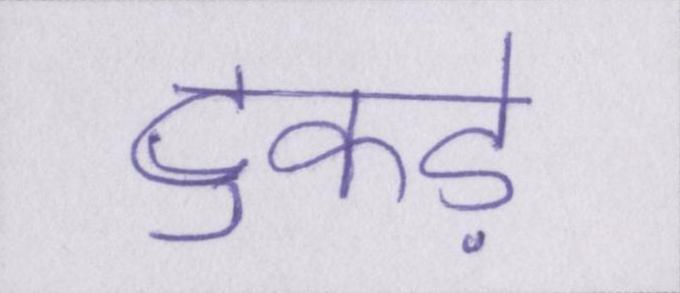 टुकड़े